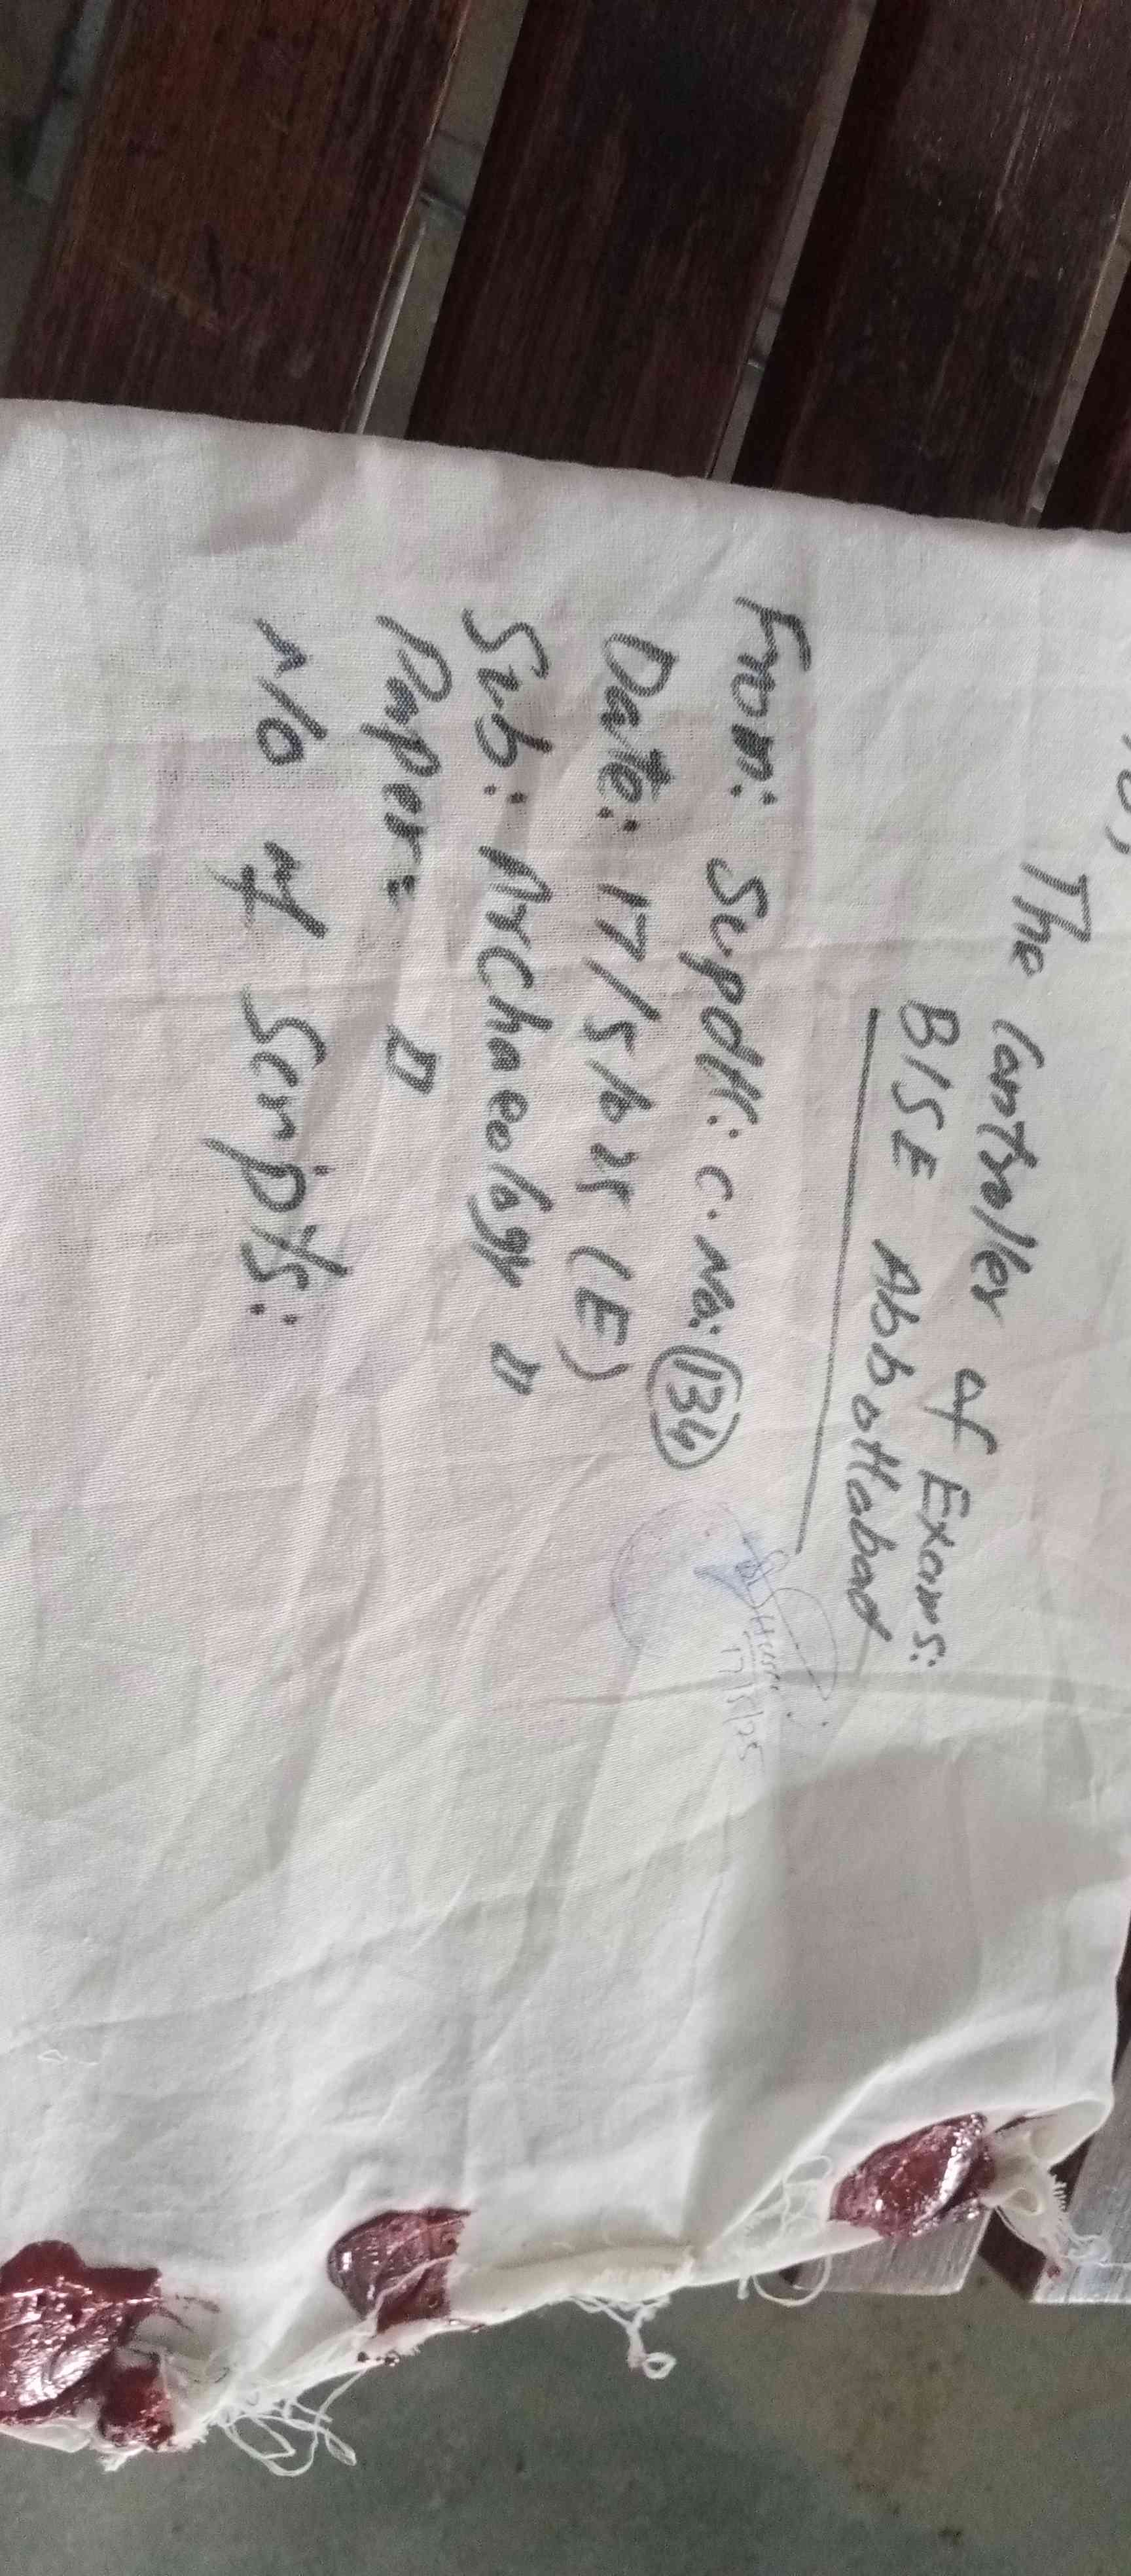 To,
The Controller of Exams:
BISE Abbottabad
From: Supdtt: C.No: 134
Date: 17/5/025 (E)
Sub: Archaeology II
Paper: II
N/O of Scripts:
17/5/25